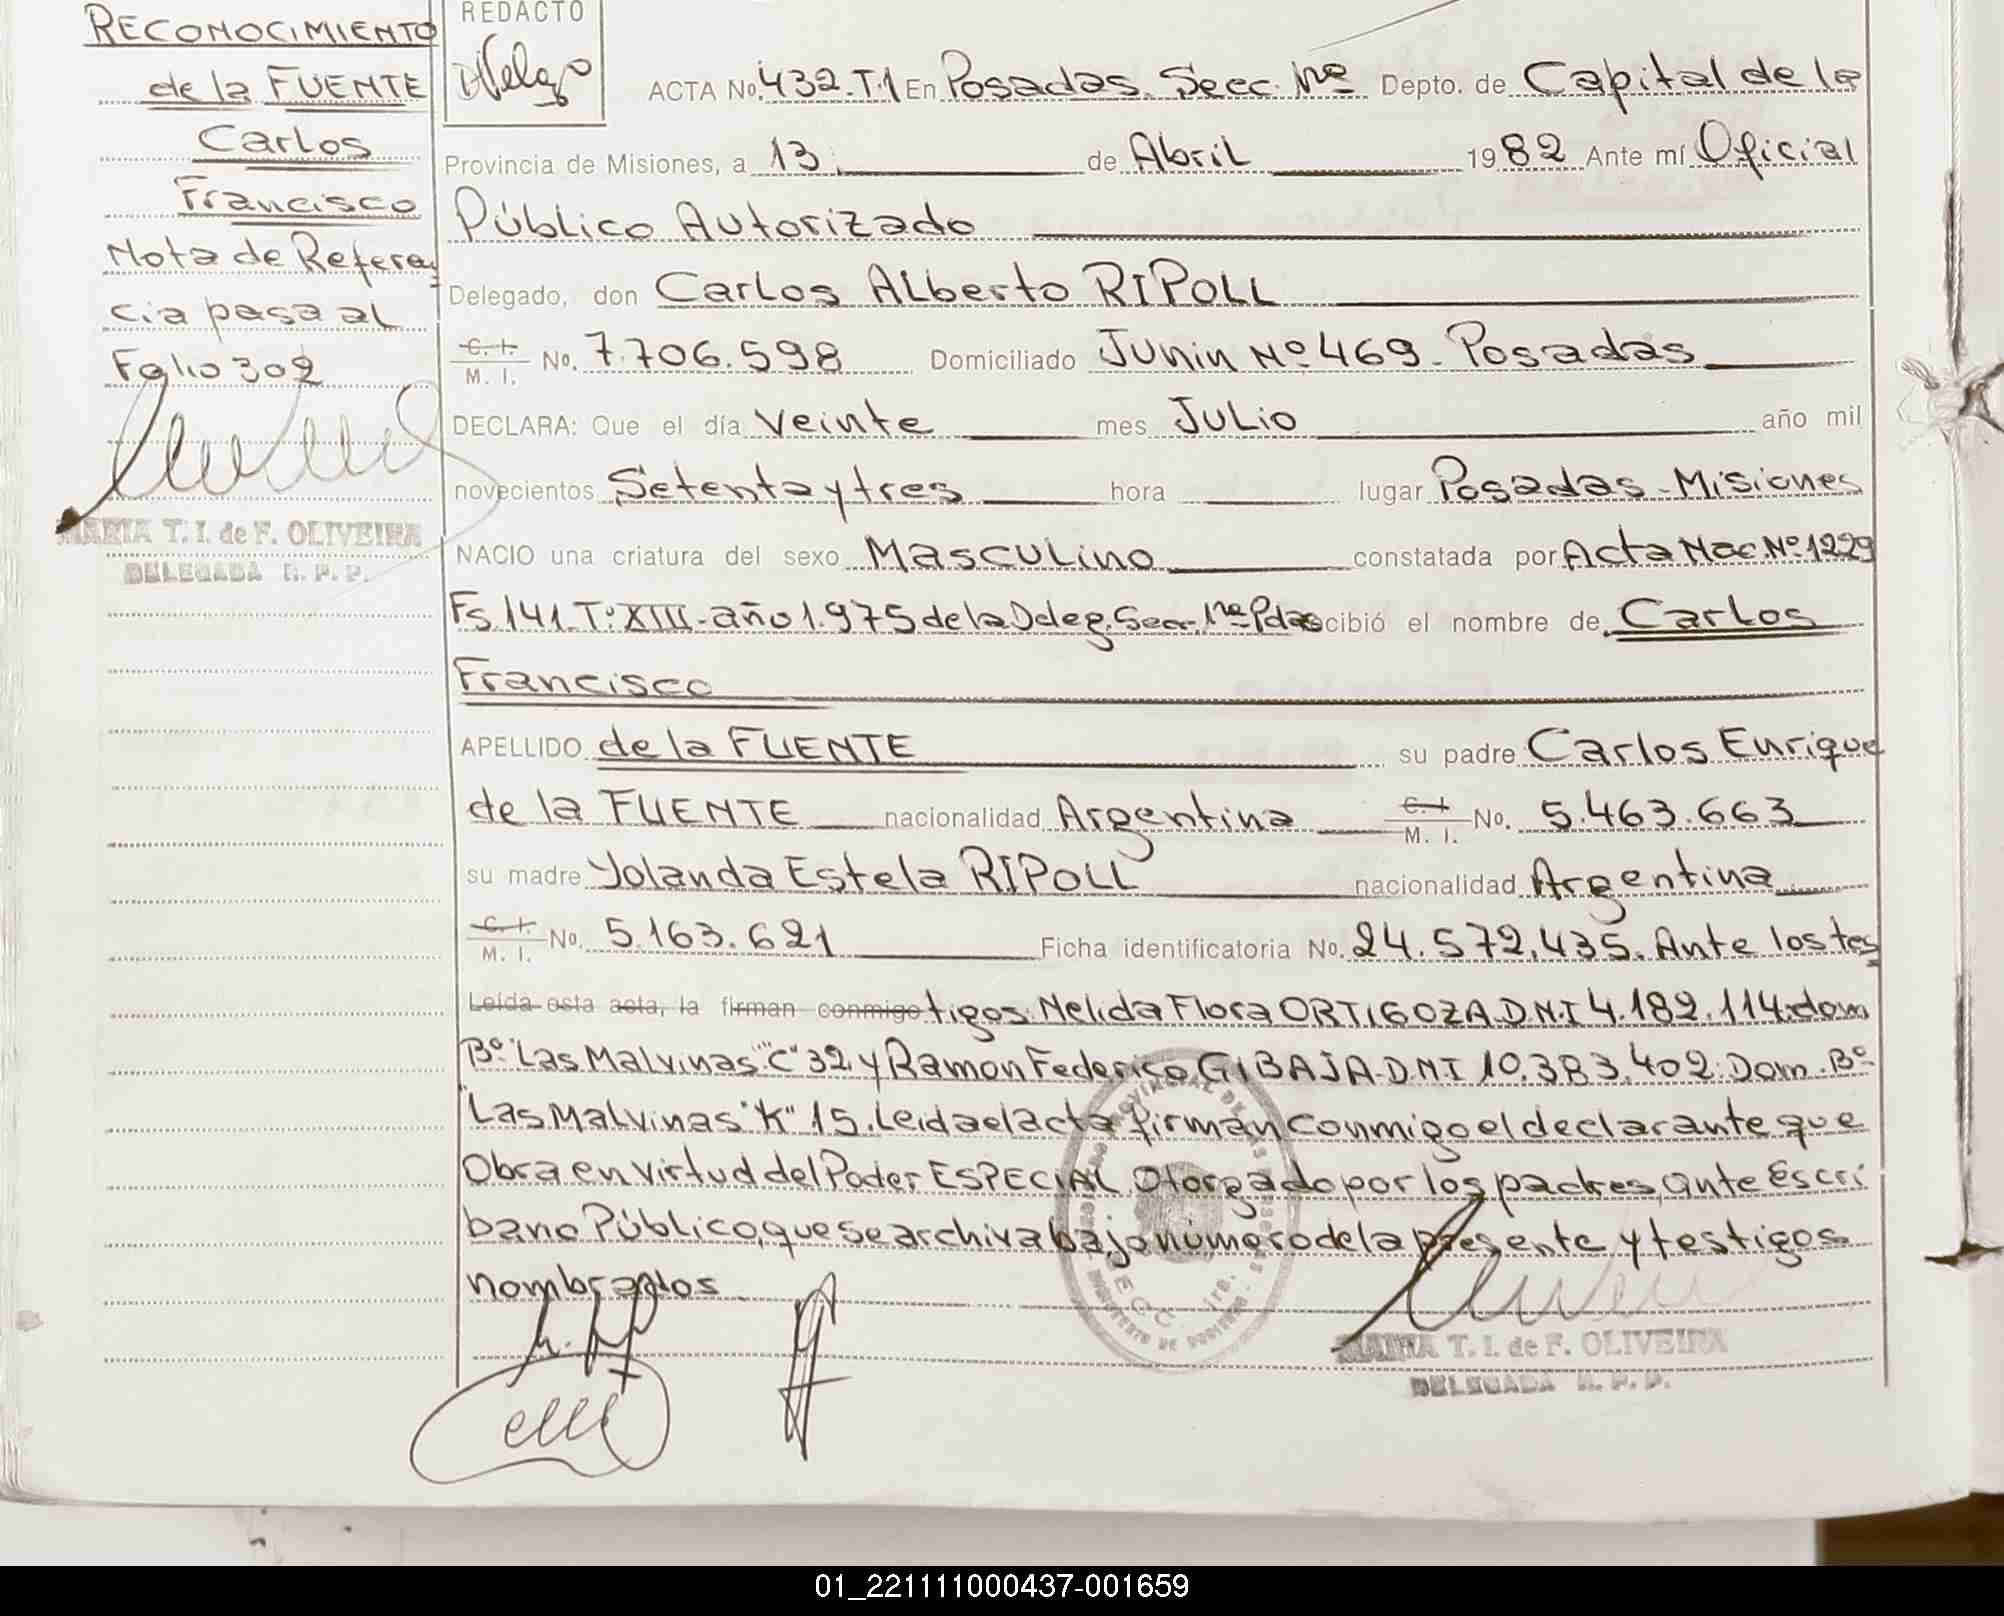 RECONOCIMIENTO
de la FUENTE
Carlos
Francisco
Nota de Referen
cia pasa al
Folio 302
MARIA T. I. de F. OLIVEIRA
DELEGADA R. P. P.
REDACTO
ACTA No. 432.T.1 En Posadas. Secc. 1ra Depto. de Capital de la
Provincia de Misiones, a 13. de Abril 1982 Ante mí Oficial
Público Autorizado
Delegado, don Carlos Alberto RIPOLL
C. I. M. I. No. 7.706.598 Domiciliado Junin Nº 469. Posadas
DECLARA: Que el día Veinte mes Julio año mil
novecientos Setenta y tres hora lugar Posadas-Misiones
NACIO una criatura del sexo Masculino constatada por Acta Nac. Nº 1229
Fs. 141. Tº XIII. año 1.975 de la Deleg. Secc. 1ra Pdas cibió el nombre de Carlos
Francisco
APELLIDO de la FUENTE su padre Carlos Enrique
de la FUENTE nacionalidad Argentina C. I. M. I. No. 5.463.663
su madre Yolanda Estela RIPOLL nacionalidad Argentina
C. I. M. I. No. 5.163.621 Ficha identificatoria No. 24.572.435. Ante los tes
Leída esta acta, la firman conmigo tigos: Nelida Flora ORTIGOZA. D.N.I 4.182.114: dom
Bº "Las Malvinas" "C" 32 y Ramon Federico GIBAJA-DNI 10.383.402: Dom. Bº
"Las Malvinas "K" 15. Leida el acta firman conmigo el declarante que
Obra en virtud del Poder ESPECIAL Otorgado por los padres, ante Escri
bano Público, que se archiva bajo número de la presente y testigos
nombrados.
MARIA T. I. de F. OLIVEIRA
DELEGADA R. P. P.
01_221111000437-001659